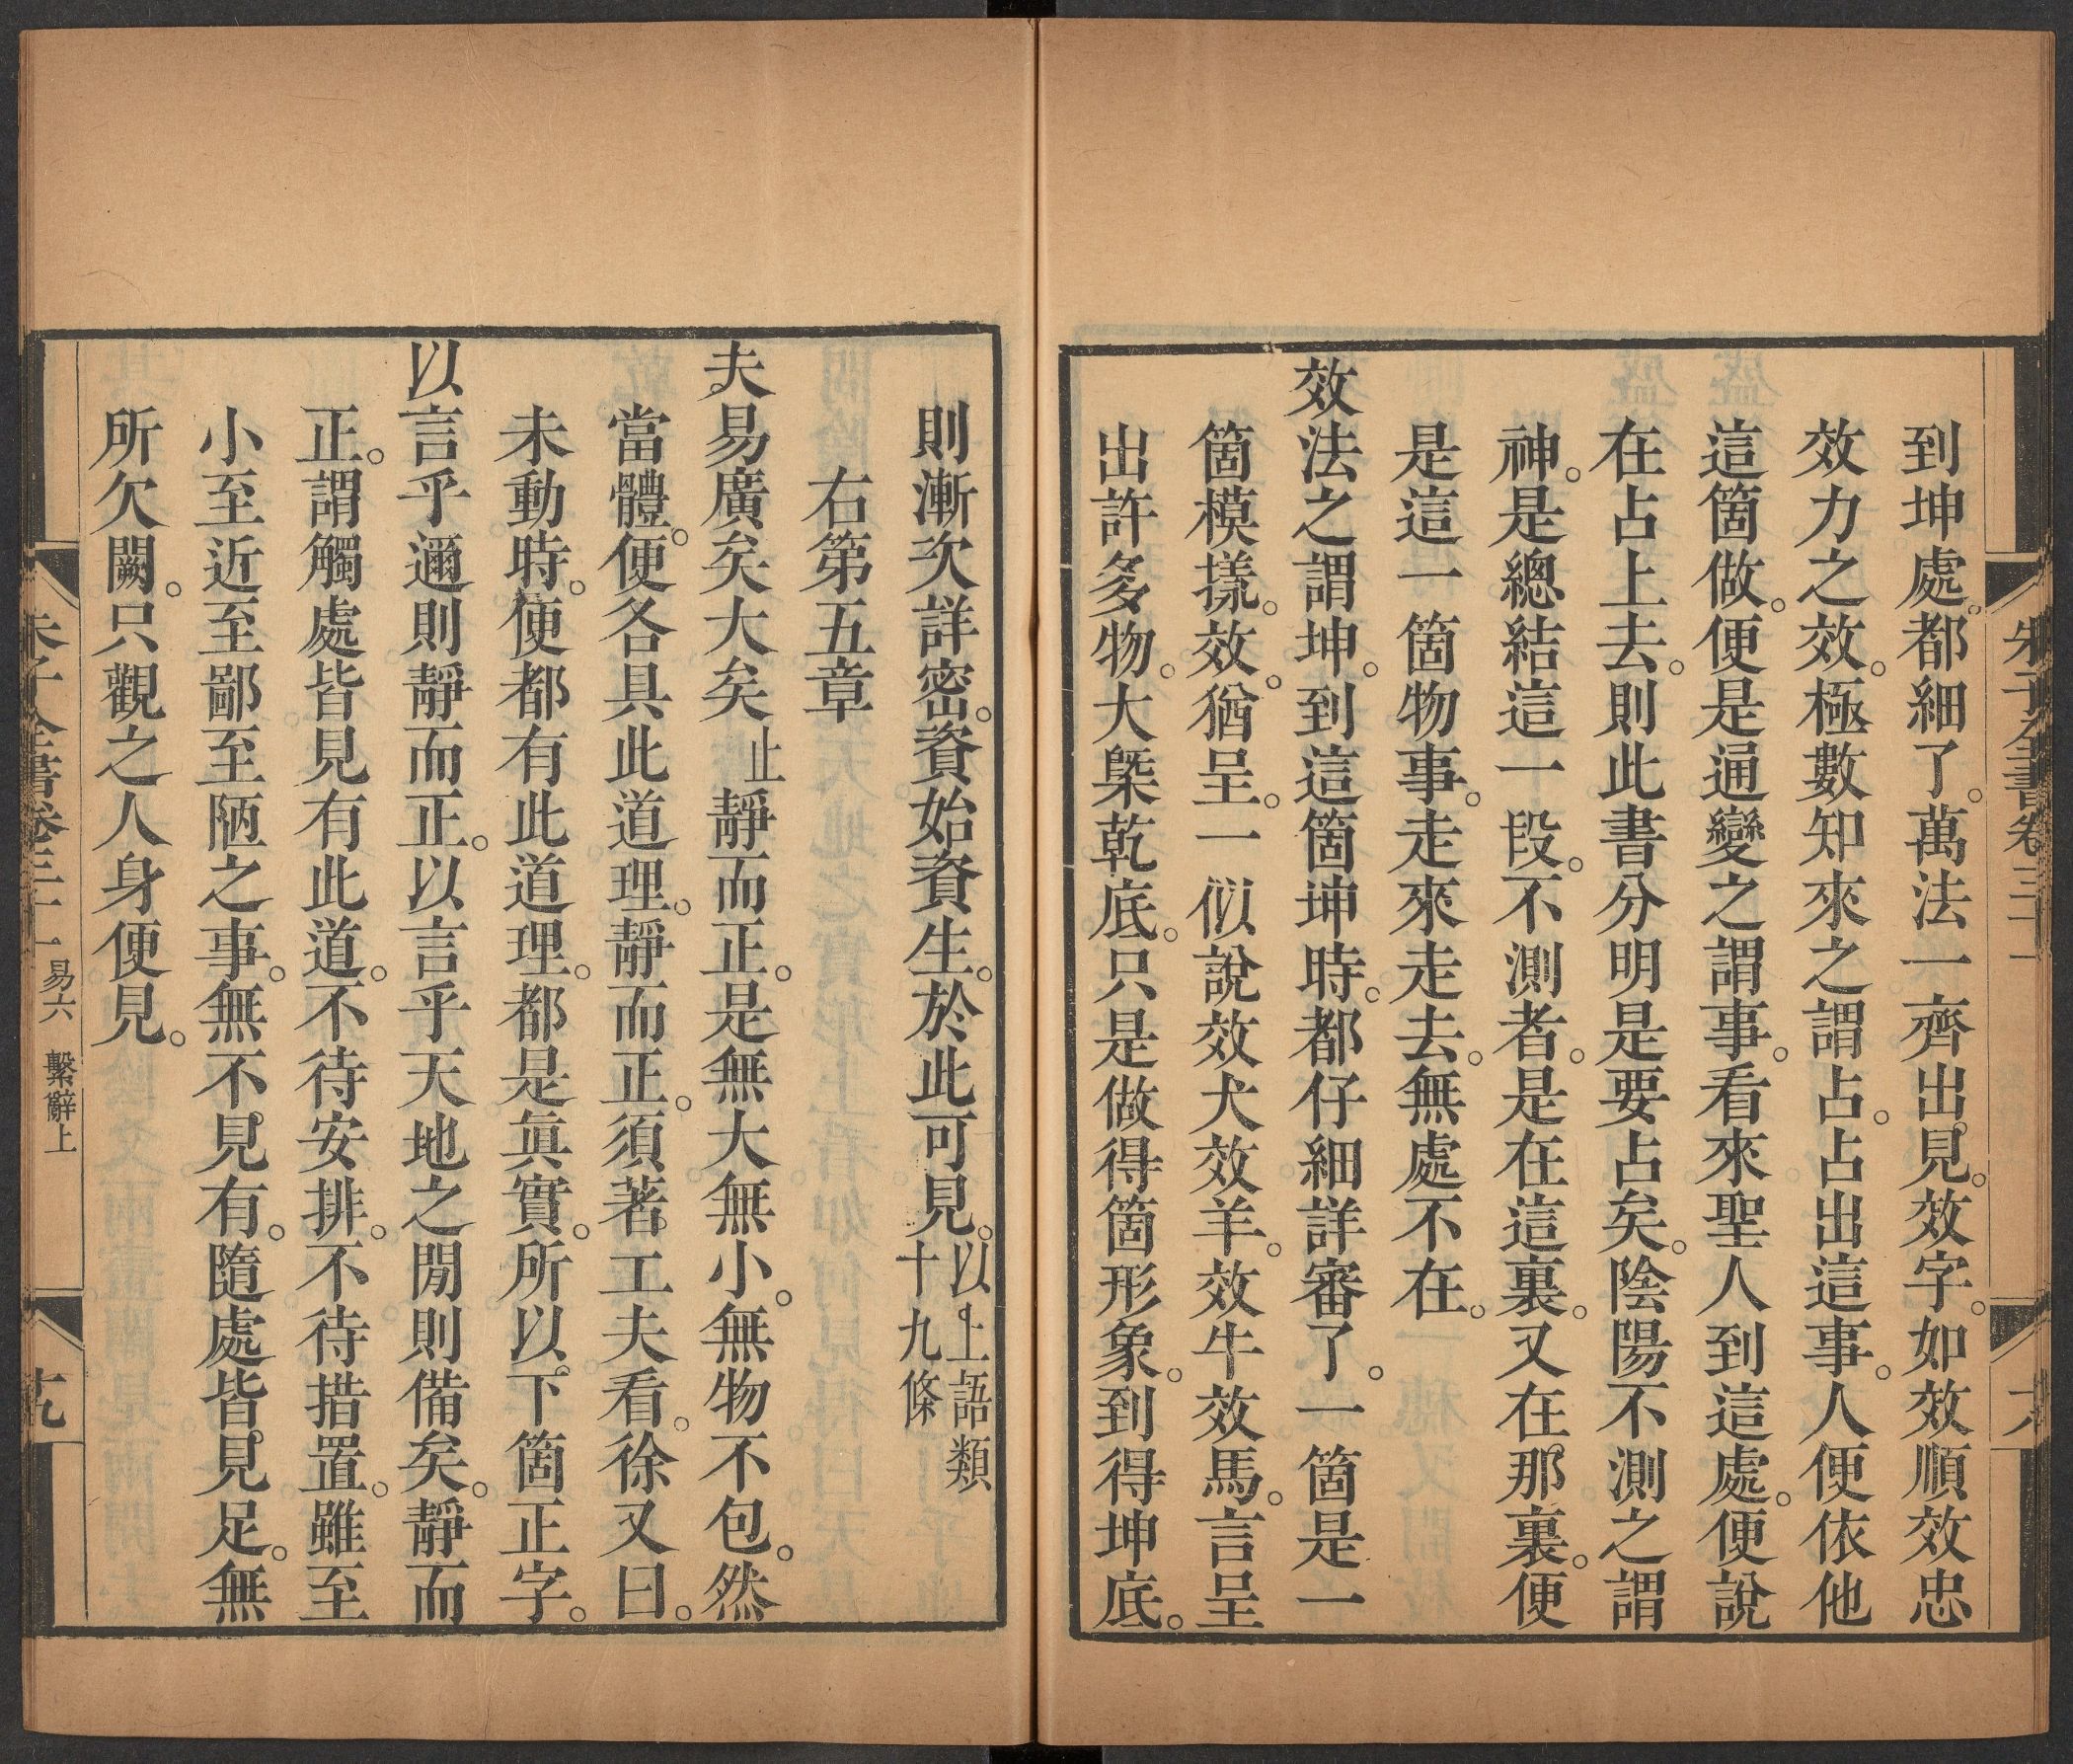 朱子全書卷三十一
到坤處。都細了。萬法一齊出見。效字。如效順效忠
效力之效。極數知來之謂占。占出這事。人便依他
這箇做。便是通變之謂事。看來聖人到這處。便說
在占上去。則此書分明是要占矣。陰陽不測之謂
神。是總結這一段。不測者。是在這裏。又在那裏。便
是這一箇物事。走來走去。無處不在。
效法之謂坤。到這箇坤時。都仔細詳審了。一箇是一
箇模㨾。效。猶呈。一似說效犬效羊。效牛效馬。言呈
出許多物。大槩乾底。只是做得箇形象。到得坤底。
則漸次詳密。資始資生。於此可見。以上語類
十九條
右第五章
夫易廣矣大矣止靜而正。是無大無小。無物不包。然
當體。便各具此道理。靜而正。須著工夫看。徐又曰。
未動時。便都有此道理。都是眞實。所以下箇正字。
以言乎邇則靜而正。以言乎天地之閒則備矣。靜而
正。謂觸處皆見有此道。不待安排。不待措置。雖至
小至近至鄙至陋之事。無不見有。隨處皆見足。無
所欠闕。只觀之人身便見。
朱子全書卷三十一 易六 繫辭上
十九